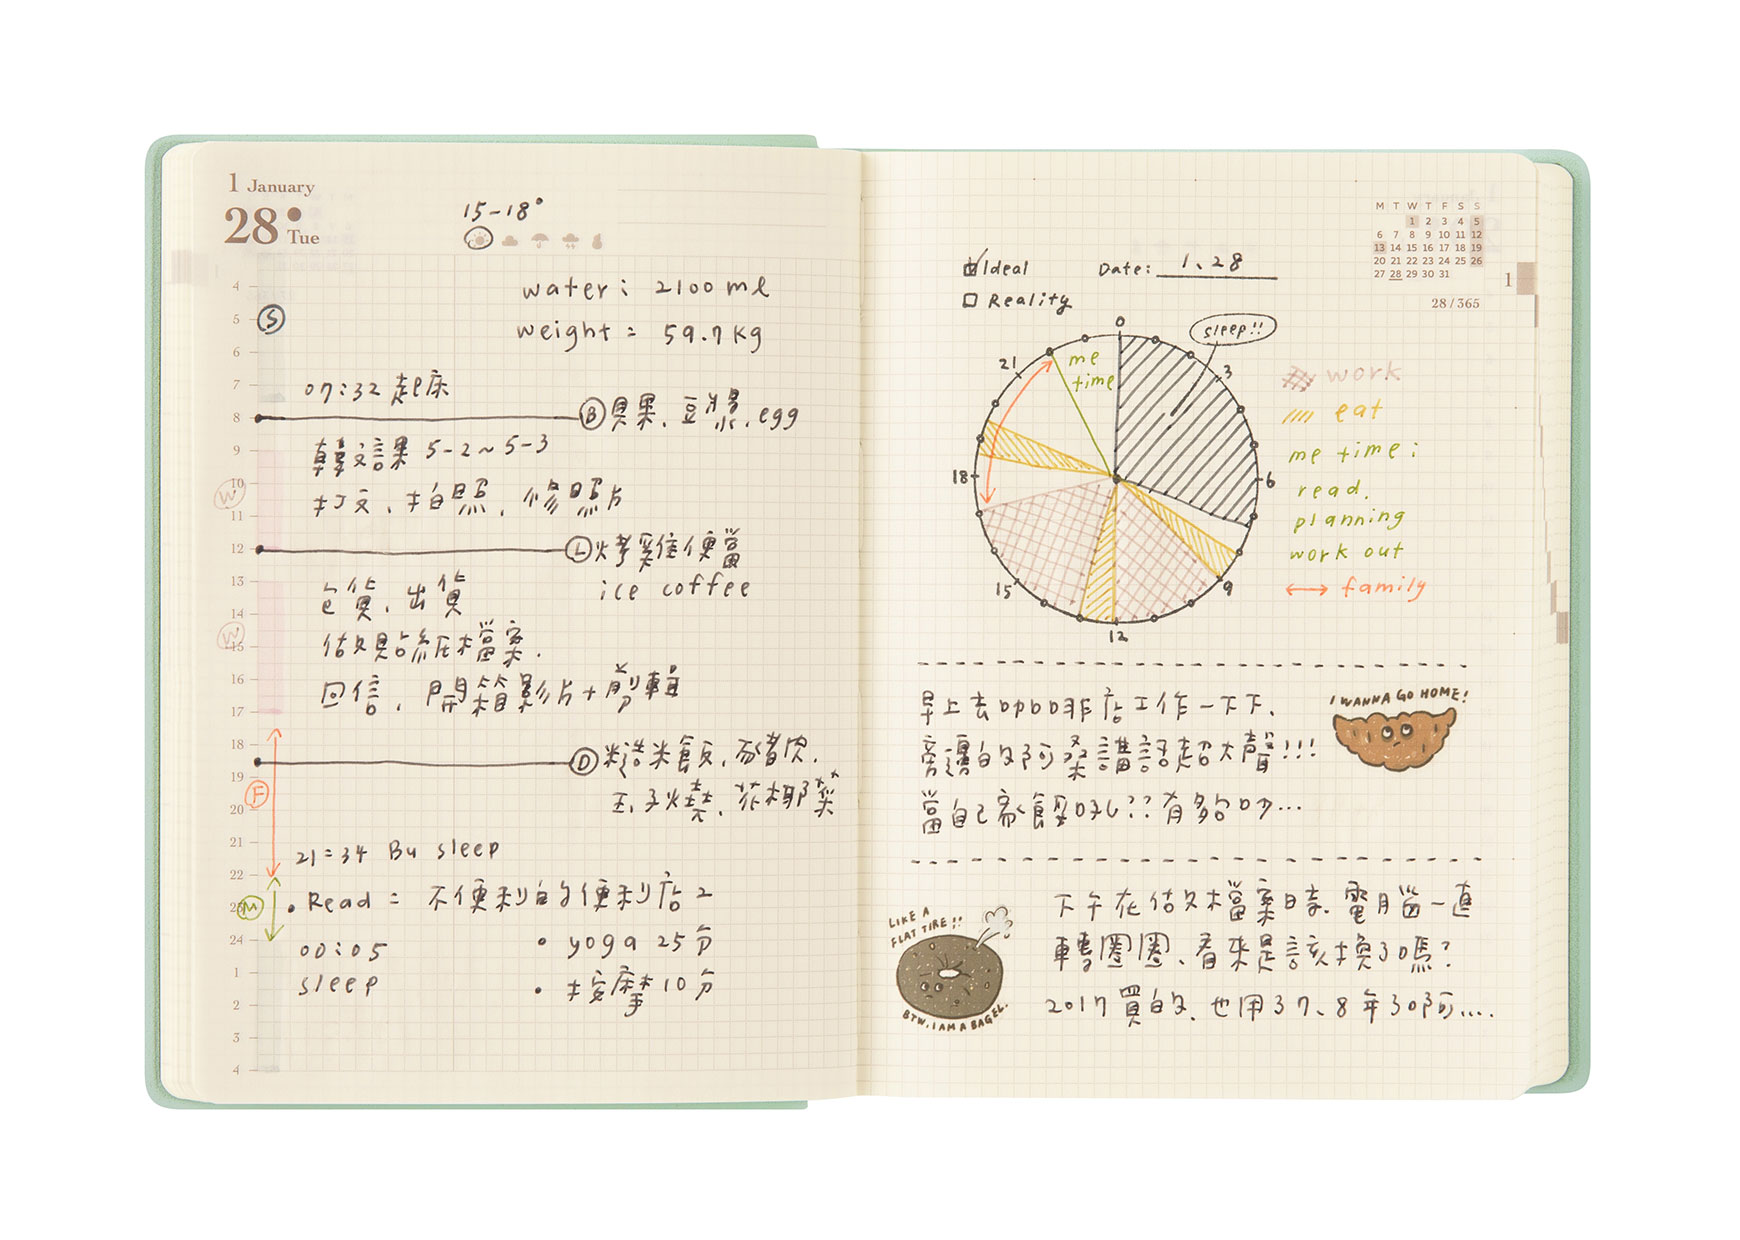 1 January
28 Tue
15-18°
4
5
6
7
8
9
10
11
12
13
14
15
16
17
18
19
20
21
22
23
24
1
2
3
4
S
W
W
F
M
water: 2100 ml
weight = 59.7kg
07:32 起床
B 貝果、豆漿、egg
韓文課 5-2~5-3
打文、拍照、修照片
L 烤雞便當
ice coffee
包貨、出貨
做貼紙檔案.
回信、開箱影片+剪輯
D 糙米飯、豬肉、
玉子燒、花椰菜
21:34 Bu sleep
• Read = 不便利的便利店2
00:05
sleep
• yoga 25分
• 按摩10分
M T W T F S S
1 2 3 4 5
6 7 8 9 10 11 12
13 14 15 16 17 18 19
20 21 22 23 24 25 26
27 28 29 30 31
1
28/365
Ideal
Date: 1.28
Reality
0
3
6
9
12
15
18
21
sleep!!
me
time
work
eat
me time:
read.
planning
work out
family
早上去咖啡店工作一下下、
旁邊的阿桑講話超大聲!!!
當自己家餒??有夠吵...
I WANNA GO HOME!
LIKE A
FLAT TIRE!!
BTW, I AM A BAGEL.
下午在做檔案時、電腦一直
轉圈圈、看來是該換了嗎?
2017買的、也用了7、8年了啊....